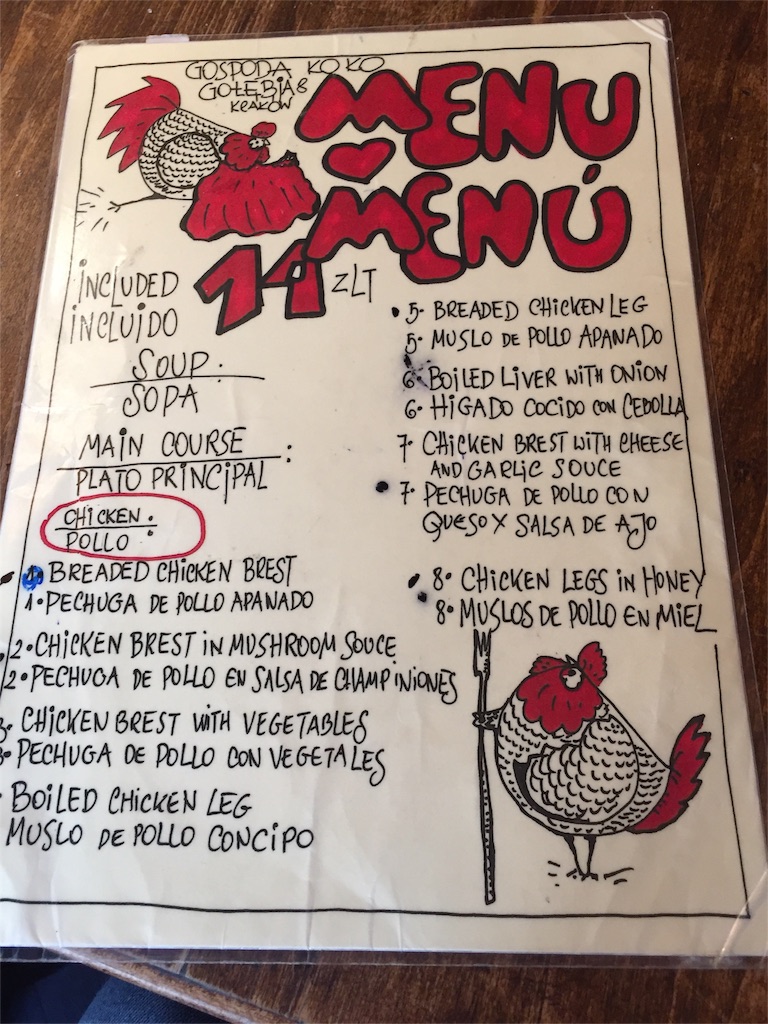 GOSPODA KOKO
GOŁĘBIA 8
KRAKÓW
MENU
MENÚ
14 ZLT
INCLUDED
INCLUIDO
SOUP.
SOPA
MAIN COURSE :
PLATO PRINCIPAL
CHICKEN :
POLLO
1• BREADED CHICKEN BREST
1• PECHUGA DE POLLO APANADO
2• CHICKEN BREST IN MUSHROOM SOUCE
2• PECHUGA DE POLLO EN SALSA DE CHAMPINIONES
3• CHICKEN BREST WITH VEGETABLES
3• PECHUGA DE POLLO CON VEGETALES
BOILED CHICKEN LEG
MUSLO DE POLLO CONCIPO
5• BREADED CHICKEN LEG
5• MUSLO DE POLLO APANADO
6• BOILED LIVER WITH ONION
6• HIGADO COCIDO CON CEBOLLA
7• CHICKEN BREST WITH CHEESE
AND GARLIC SOUCE
7• PECHUGA DE POLLO CON
QUESO Y SALSA DE AJO
8• CHICKEN LEGS IN HONEY
8• MUSLOS DE POLLO EN MIEL